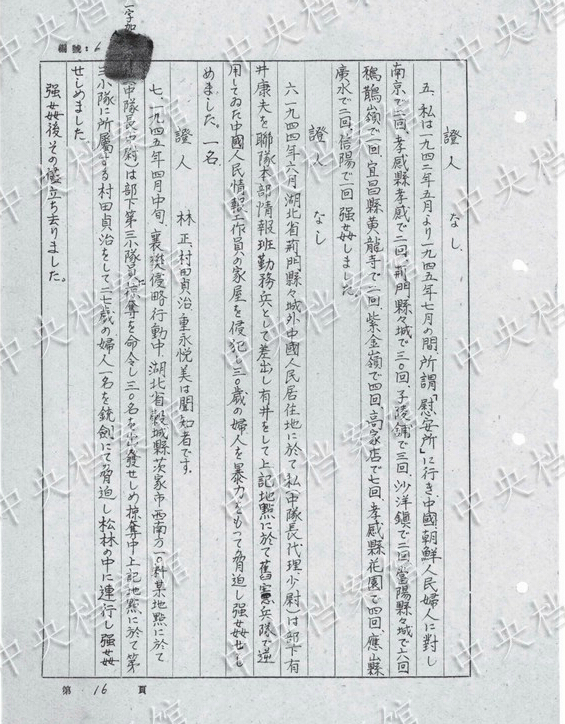 編號:6
證人 なし
五、私は一九四二年五月より一九四五年七月の間、所謂「慰安所」に行き、中國、朝鮮人民婦人に對し
南京で二回、孝感縣孝感で二回、荊門縣々城で三〇回、子陵鋪で三回、沙洋鎮で二回、當陽縣々城で六回
鴉鵲嶺で一回、宜昌縣黄龍寺で二回、紫金嶺で四回、高家店で七回、孝感縣花園で四回、應山縣
廣水で二回、信陽で一回強姦しました。
證人 なし
六、一九四四年六月湖北省荊門縣々城外中國人民居住地に於て私(中隊長代理少尉)は部下有
井康夫を聯隊本部情報班勤務兵として差出し有井をして上記地點に於て舊憲兵隊で逮
用してゐた中國人民情報工作員の家屋を侵犯し三〇歳の婦人を暴力をもつて脅迫し強姦せし
めました。一名
證人 林正、村田貞治、重永悦美は聞知者です。
七、一九四五年四月中旬、襄樊侵略行動中、湖北省穀城縣茨家市西南方一〇粁某地點に於て
(中隊長、中尉)は部下第三小隊員に掠奪を命令し三〇名を出發せしめ掠奪中上記地點に於て第
三小隊に所屬する村田貞治をして二七歳の婦人一名を銃劍にて脅迫し松林の中に連行し強姦
せしめました。
強姦後その儘立ち去りました。
一字加
第 16 頁
中央档案馆